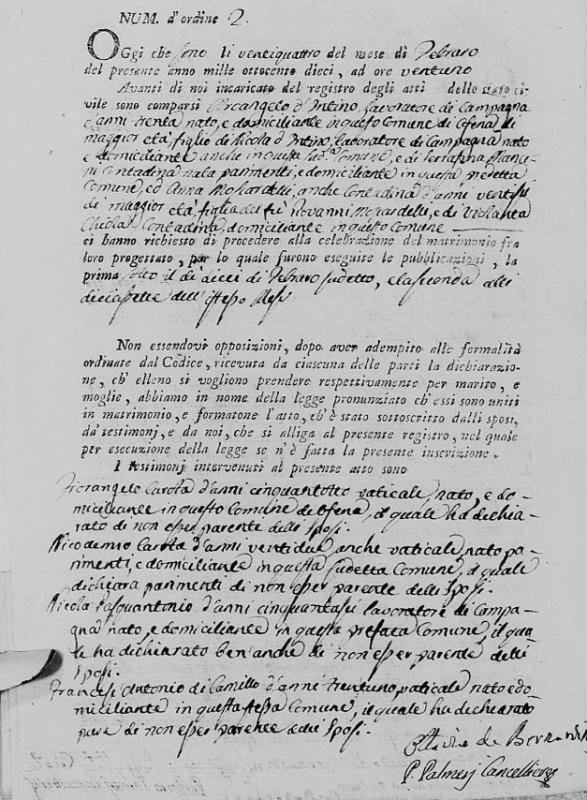 NUM. d'ordine 2.
OGgi che sono li ventiquattro del mese di Febraro
del presente anno mille ottocento dieci, ad ore ventuno
Avanti di noi incaricato del registro degli atti dello stato ci-
vile sono comparsi Arcangelo d'Intino, lavoratore di Campagna
d'anni trenta nato, e domiciliante in questo Comune di Ofena, di
maggior età, figlio di Nicola d'Intino, lavoratore di Campagna nato
e domiciliante anche in questa Comune, e di Serafina
Contadina nata parimenti, e domiciliante in questa sudetta
Comune, ed Anna Moscardelli, anche Contadina d'anni
di maggior età, figlia del fù Giovanni Moscardelli, e di Violanta
Contadina, domiciliante in questo Comune
ci hanno richiesto di procedere alla celebrazione del matrimonio fra
loro progettato, per lo quale furono eseguite le pubblicazioni, la
prima sotto il dì dieci di Febraro sudetto, e la seconda alli
diciasette dell'istesso Mese
Non essendovi opposizioni, dopo aver adempito alle formalità
ordinate dal Codice, ricevuta da ciascuna delle parti la dichiarazio-
ne, ch' elleno si vogliono prendere respettivamente per marito, e
moglie, abbiamo in nome della legge pronunziato ch'essi sono uniti
in matrimonio, e formatone l'atto, ch'è stato sottoscritto dalli sposi,
da' testimonj, e da noi, che si alliga al presente registro, nel quale
per esecuzione della legge se n'è fatta la presente inscrizione.
I testimonj intervenuti al presente atto sono
Fiorangelo Carota d'anni cinquantotto vaticale, nato, e do-
miciliante in questo Comune di Ofena, il quale ha dichia-
rato di non esser parente delli Sposi.
Nicodemo Carota d'anni ventidue anche vaticale, nato pa-
rimenti, e domiciliante in questa sudetta Comune, il quale
dichiara parimenti di non esser parente delli Sposi.
Nicola Pasquantonio d'anni cinquantasei lavoratore di Campa-
gna nato, e domiciliante in questa prefata Comune, il qua-
le ha dichiarato ben'anche di non esser parente delli
Sposi.
Antonio di Camillo d'anni trentuno, vaticale nato e do-
miciliante in questa stessa Comune, il quale ha dichiarato
pure di non esser parente delli Sposi.
de
P. Palmerj Cancelliere